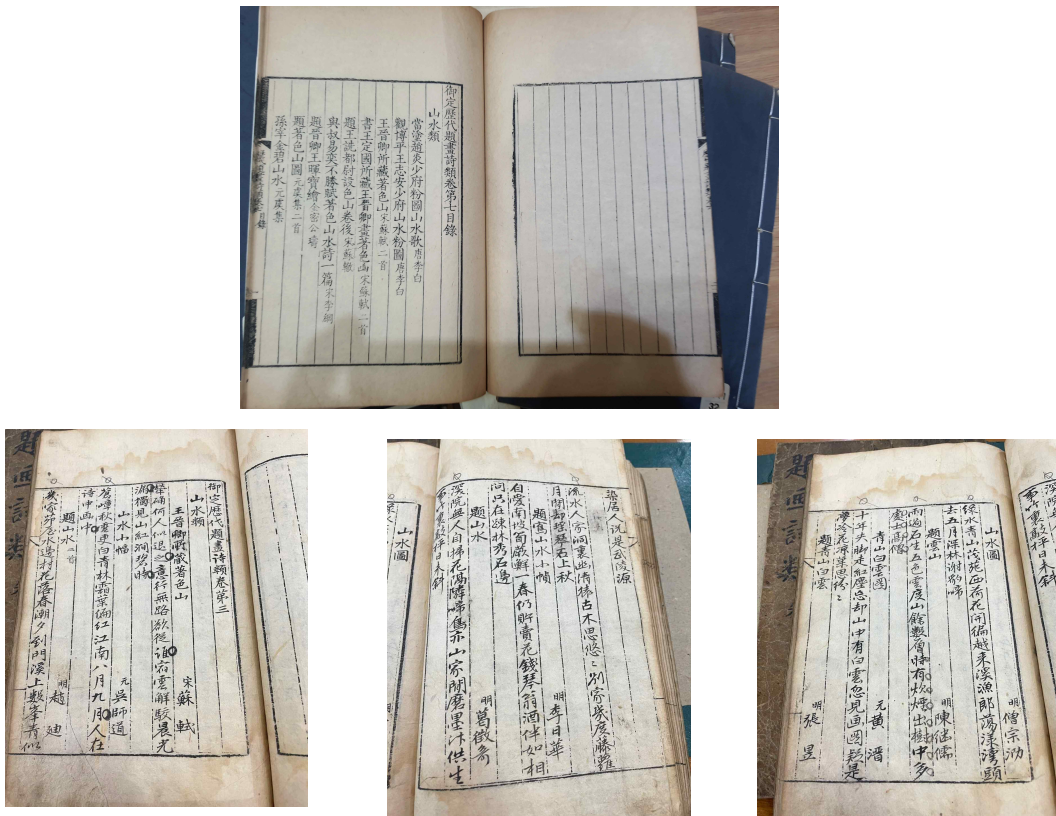 御定歷代題畫詩類卷第七目錄
山水類
當塗趙炎少府粉圖山水歌唐李白
觀博平王志安少府山水粉圖唐李白
王晉卿所藏著色山宋蘇軾二首
書王定國所藏王晉卿畫著色山宋蘇軾二首
題王詵都尉設色山卷後宋蘇轍
與叔易奕不勝賦著色山水詩一篇宋李綱
題晉卿王暉寶繪金密公璹
題著色山圖元虞集二首
孫宰金碧山水元虞集
御定歷代題畫詩類卷第三
山水類
王晉卿所藏著色山 宋 蘇軾
犖确何人似退之意行無路欲從誰宿雲解駁晨光
漏獨見山紅澗碧時
山水小幅 元 吳師道
蒼嶂秋更白青林霜葉偏紅江南八月九月人在
詩中画中
題山水二首 明 趙迪
幾家茆屋水邊村花落春潮夕到門溪上數峯青似
築居人說是武陵源
流水人家洞裏幽清猿古木思悠〻別家幾度藤蘿
月閒卻瑤琴石上秋
題寫山水小幀 明 李日華
自愛南坡筍蕨鮮一春仍貯賣花錢琴翁酒伴如相
問只在疎林秀石邊
題山水 明 葛徵奇
深院無人自掃花隔隣啼鳥亦山家閒磨墨汁供生
山水圖 明 僧宗泐
綠水青山淺苑西荷花開徧越來溪漁郎蕩漾灣頭
去五月深林謝豹啼
題雲山 明 陳繼儒
雨過石生五色雲度山餘數層時有炊煙出樹中多
處士高僧
青山白雲圖 元 黄溍
十年失脚走紅塵忘却山中有白雲忽見画圖疑是
夢冷花凉葉思紛〻
題青山白雲 明 張昱